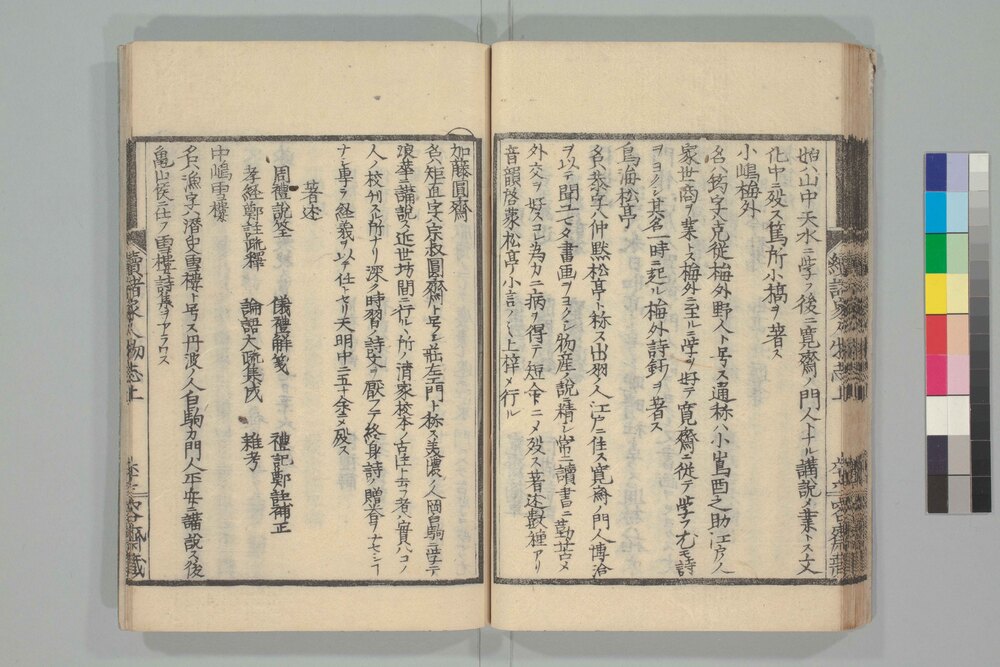 始ハ山中天水ニ学フ後ニ寛齋ノ門人トナル講説ヲ業トス文
化中ニ歿ス篤所小稿ヲ著ス
小嶋梅外
名ハ筠字ハ克從梅外野人ト号ス通称ハ小嶌酉之助江戸ノ人
家世商ヲ業トス梅外ニ至ルニ学ヲ好テ寛齋ニ從テ学フ尤モ詩
ヲヨクシ其名一時ニ起ル梅外詩鈔ヲ著ス
鳥海松亭
名ハ恭字ハ仲黙松亭ト称ス出羽ノ人江戸ニ住ス寛齋ノ門人博洽
ヲ以テ聞エ又タ書画ヲヨクシ物産ノ説ニ精シ常ニ讀書ニ勤苦メ
外交ヲ好スコレ為カニ病ヲ得テ短命ニメ歿ス著述数種アリ
音韻啓蒙松亭小言ノミ上梓メ行ル
加藤圓齋
名ハ矩直字ハ宗叔圓齋ト号シ莊左エ門ト称ス美濃ノ人岡白駒ニ学テ
浪華ニ講説ス近世坊間ニ行ルヽ所ノ清家校本ノ古注ト云フ者ハ實ハコノ
人ノ校刊スル所ナリ深ク時習ノ詩文ヲ厭フテ終身詩ノ贈答ヲナセシ
ナシ專ラ経義ヲ以テ任トセリ天明中ニ五十余ニメ歿ス
著述
周禮説筌 儀禮解箋 禮記鄭註補正
孝経鄭註疏釋 論語大疏集成 雜考
中嶋雪樓
名ハ漁字ハ潜史雪樓ト号ス丹波ノ人白駒カ門人平安ニ講説ス後
亀山侯ニ仕フ雪樓詩集ヲアラハス
續諸家人物志上